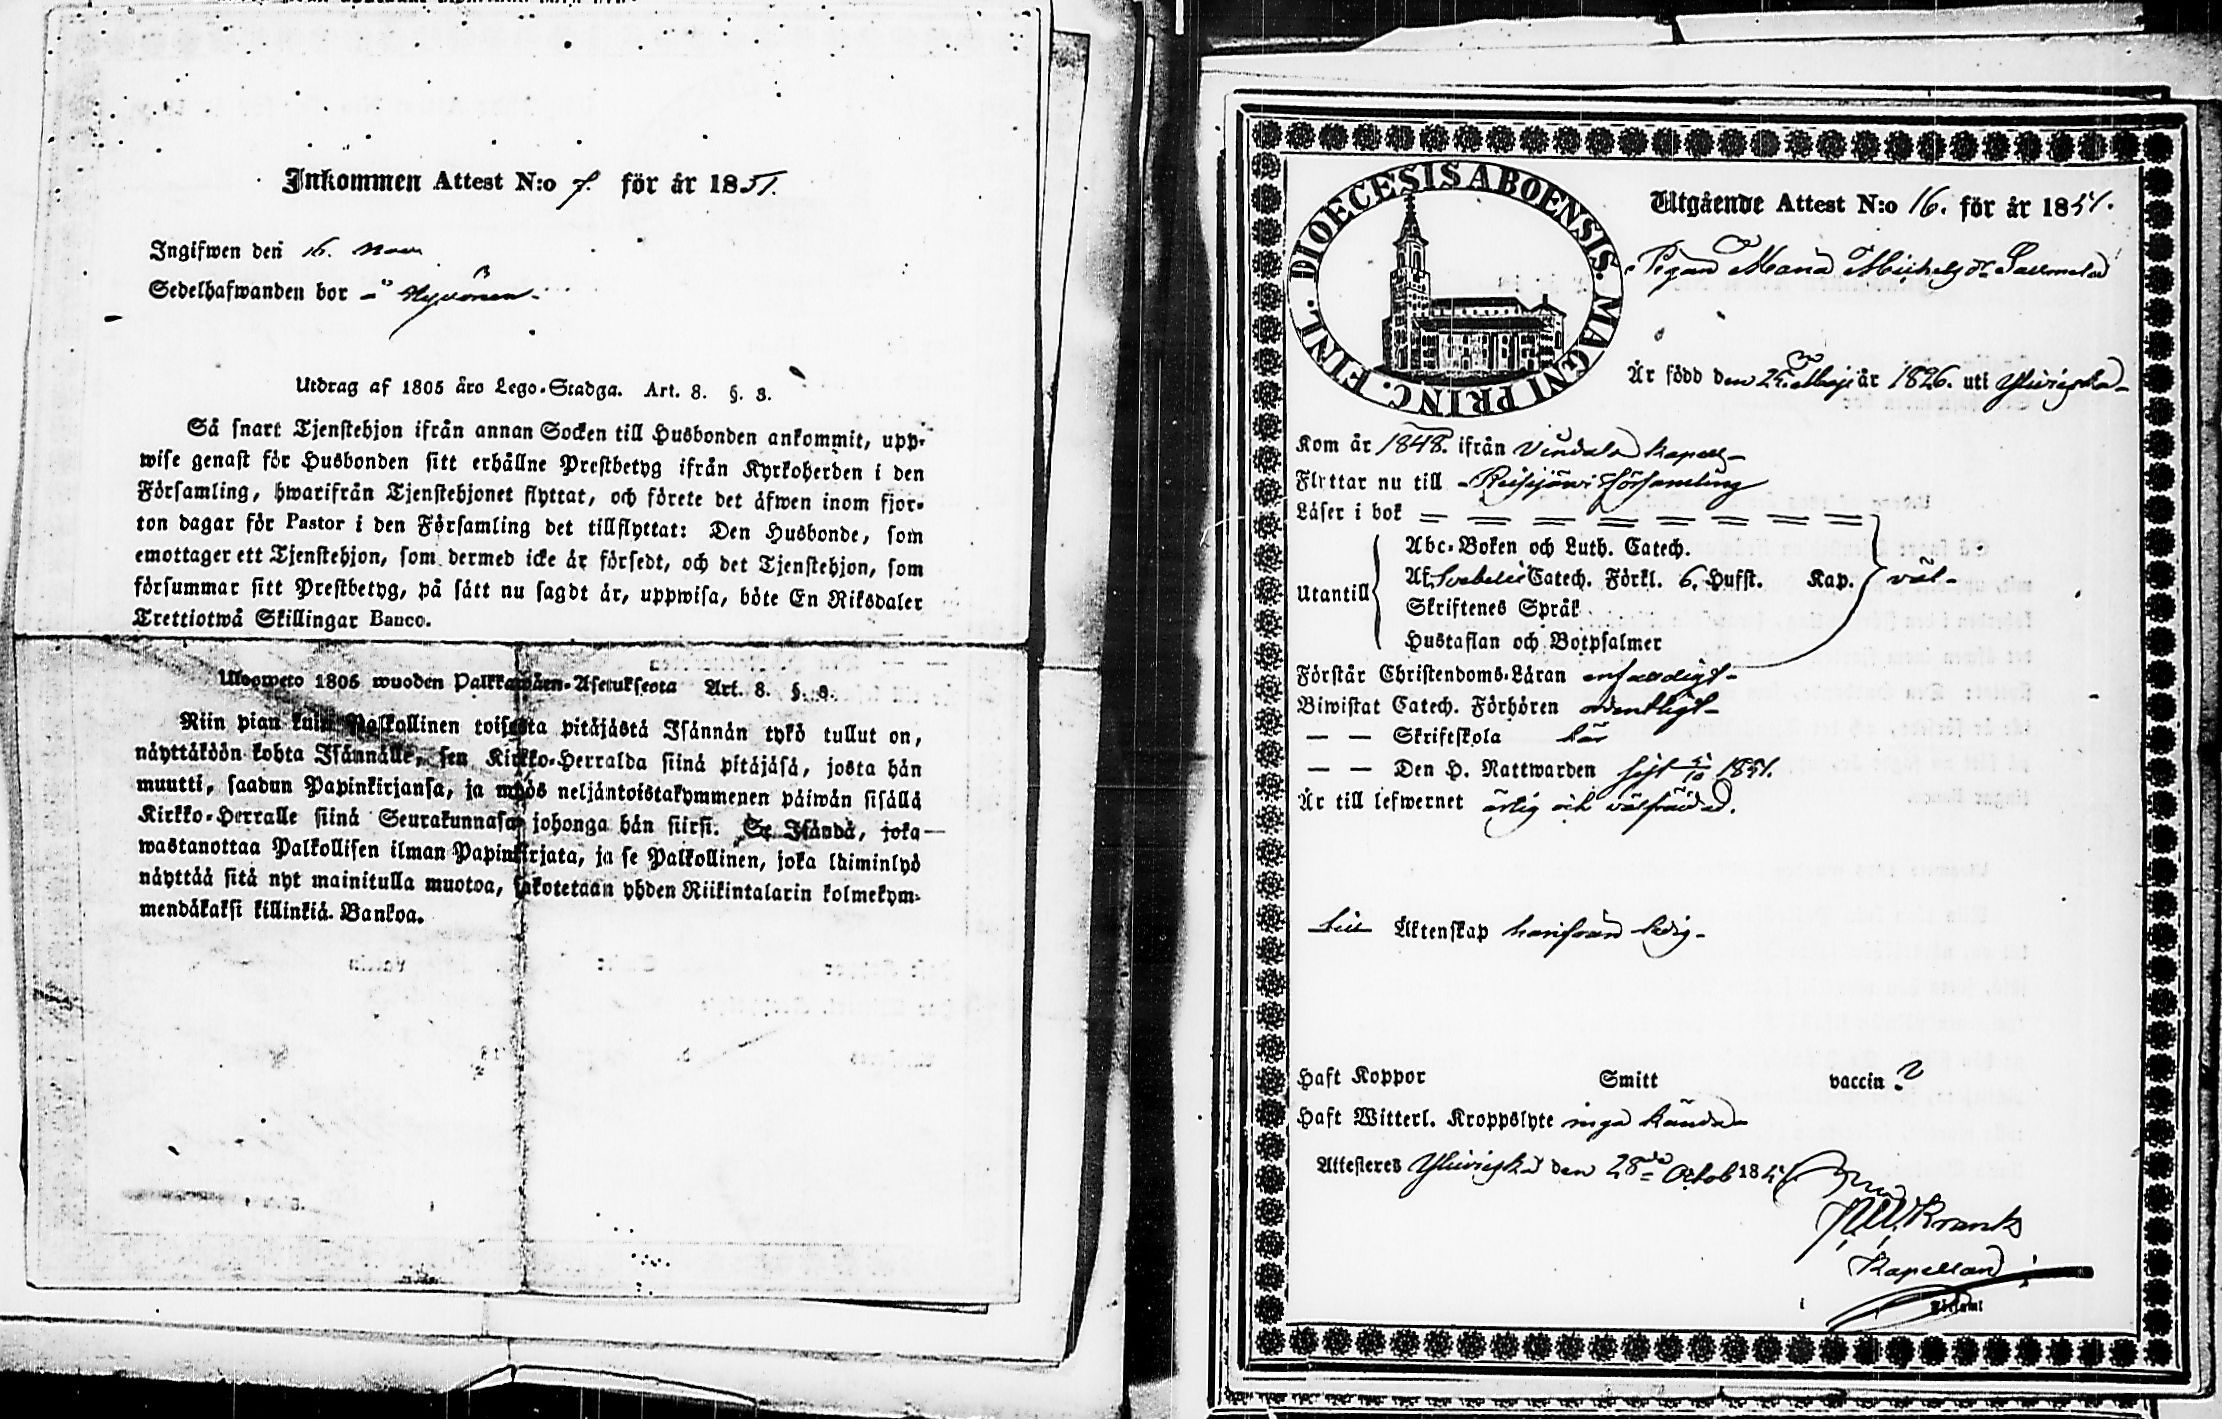 Inkommen Attest N:o 7. för år 1851.
Ingifwen den 16. Nov
Sedelhafwanden bor å Hyvönen
Utdrag af 1805 års Lego-Stadga. Art. 8. §. 3.
Så snart Tjenstehjon ifrån annan Socken till Husbonden ankommit, upp-
wise genast för Husbonden sitt erhållne Prestbetyg ifrån Kyrkoherden i den
Församling, hwarifrån Tjenstehjonet flyttat, och förete det äfwen inom fjor-
ton dagar för Pastor i den Församling det tillflyttat: Den Husbonde, som
emottager ett Tjenstehjon, som dermed icke är försedt, och det Tjenstehjon, som
försummar sitt Prestbetyg, på sätt nu sagdt är, uppwisa, böte En Riksdaler
Trettiotwå Skillingar Banco.
Ulosweto 1805 wuoden Palkkawäen-Asetuksesta Art. 8. §. 3.
Niin pian kuin Palkollinen toisesta pitäjästä Isännän tykö tullut on,
näyttäköön kohta Isännälle, sen Kirkko-Herralda siinä pitäjäsä, josta hän
muutti, saadun Papinkirjansa, ja myös neljäntoistakymmenen päiwän sisällä
Kirkko-Herralle siinä Seurakunnasa johonga hän siirsi. Se Isändä, joka
wastanottaa Palkollisen ilman Papinkirjata, ja se Palkollinen, joka läiminlyö
näyttää sitä nyt mainitulla muotoa, sakotetaan yhden Riikintalarin kolmekym-
mendäkaksi killinkiä Bankoa.
DIOECESIS ABOENSIS. MAGNI PRINC. FINL.
Utgående Attest N:o 16. för år 1851.
Pigan Maria Michelsdr
Är född den 25 Maji år 1826. uti Ylivieska
Kom år 1848. ifrån Vindala kapell
Flyttar nu till Reisjärvi församling
Läser i bok
Abc-Boken och Luth. Catech.
Af Svebelii Catech. Förkl. 6. Hufst. Kap. väl
Utantill
Skriftenes Språk
Hustaflan och Botpsalmer
Förstår Christendoms-Läran enfaldigt
Biwistat Catech. Förhören ordentligt
— — Skriftskola här
— — Den H. Nattwarden sist 5/10 1851.
Är till lefwernet ärlig och välfräjdad.
till Äktenskap härifrån ledig
Haft Koppor Smitt vaccin ?
Haft Witterl. Kroppslyte inga kända
Attesteras Ylivieska den 28de Octob 1851
Kapellan